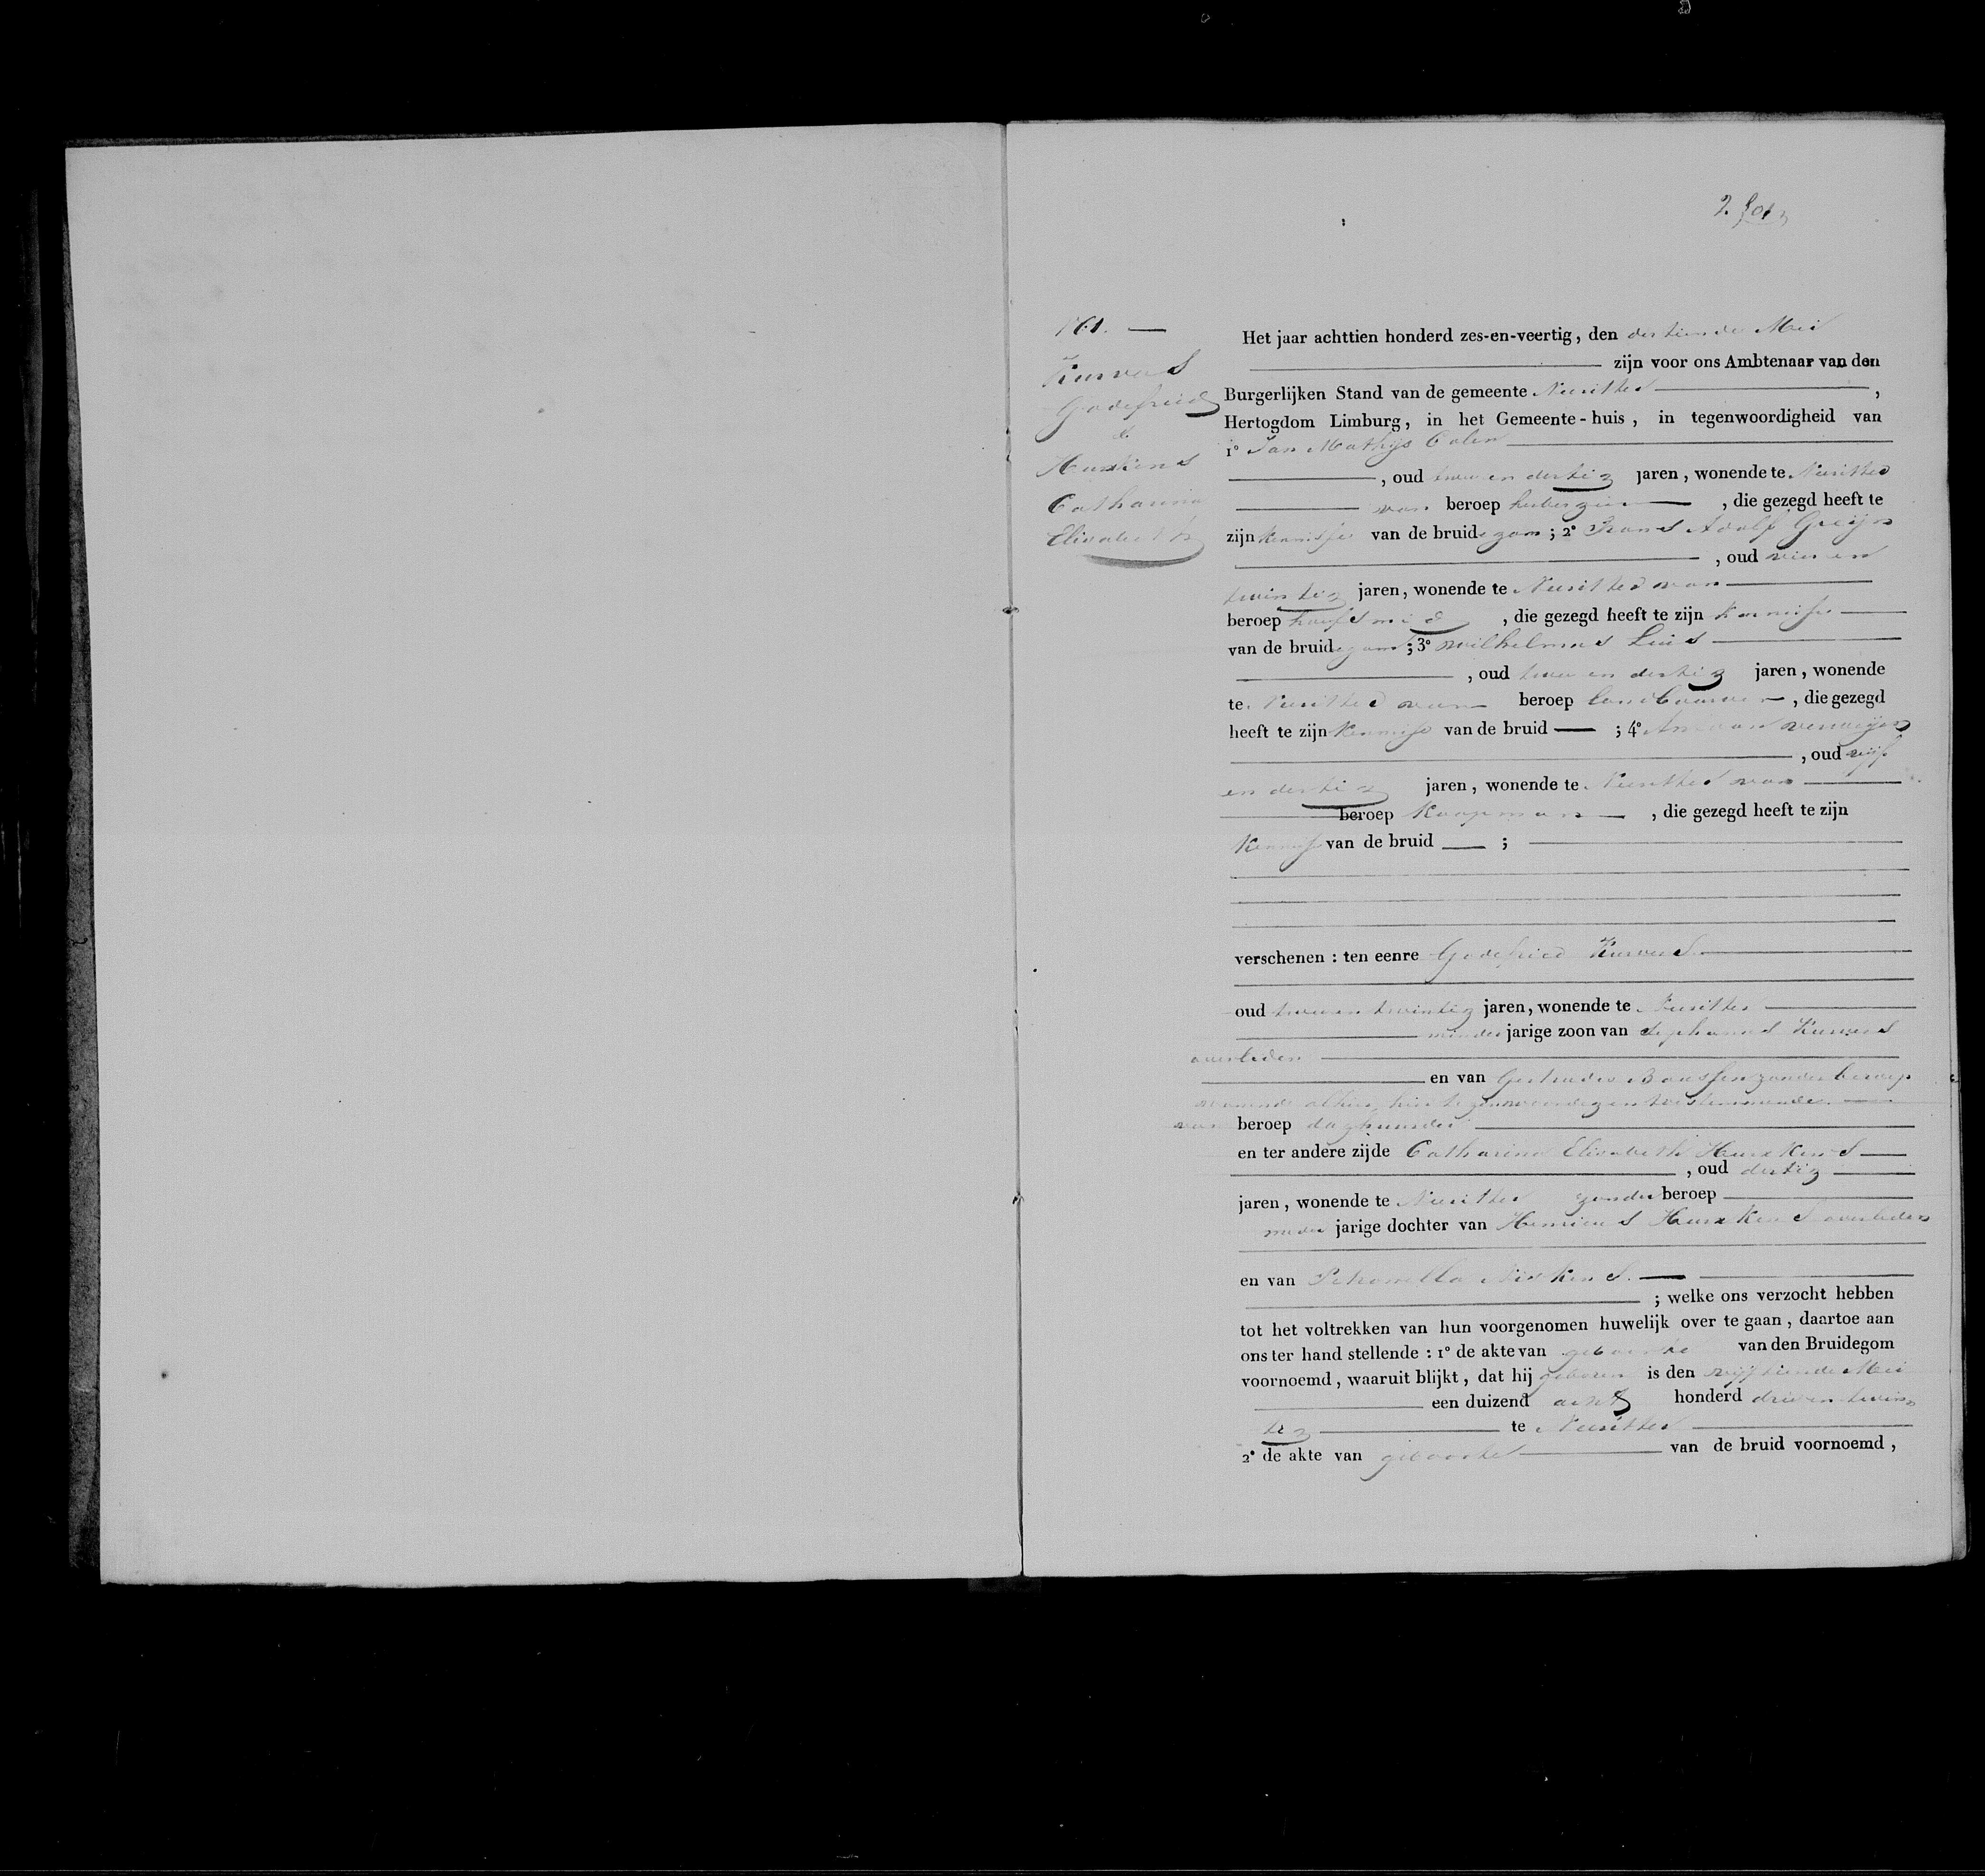 N 61. —
Kurvers
Godefried
&
Hurxkens
Catharina
Elisabeth
Het jaar achttien honderd zes-en-veertig, den dertiende Mei
zijn voor ons Ambtenaar van den
Burgerlijken Stand van de gemeente Neeritter ,
Hertogdom Limburg, in het Gemeente-huis, in tegenwoordigheid van
1° Jan Mathijs Colen
, oud twee en dertig jaren, wonende te Neeritter
van beroep herbergier , die gezegd heeft te
zijn kennisse van de bruidegom ; 2° Frans Adolf Greijn
, oud vier en
twintig jaren, wonende te Neeritter van
beroep hoefsmid , die gezegd heeft te zijn kennisse
van de bruidegom ; 3° Wilhelmus
, oud twee en dertig jaren, wonende
te Neeritter van beroep landbouwer , die gezegd
heeft te zijn kennisse van de bruid — ; 4°
, oud vijf
en dertig jaren, wonende te Neeritter van
beroep Koopman , die gezegd heeft te zijn
Kennisse van de bruid — ;
verschenen : ten eenre Godefried Kurvers
oud twee en twintig jaren, wonende te Neeritter
minderjarige zoon van Stephanus Kurvers
overleden
en van Gertrudis Boussen zonder beroep
wonende alhier, hier tegenwoordig en toestemmende
van beroep daghuurder
en ter andere zijde Catharina Elisabeth Hurxkens
, oud dertig
jaren, wonende te Neeritter zonder beroep
meder jarige dochter van Henricus Hurxkens overleden
en van Petronella Nieskens
; welke ons verzocht hebben
tot het voltrekken van hun voorgenomen huwelijk over te gaan, daartoe aan
ons ter hand stellende : 1° de akte van geboorte van den Bruidegom
voornoemd, waaruit blijkt, dat hij geboren is den vijftiende Mei
een duizend acht honderd drie en twin
tig te Neeritter
2° de akte van geboorte van de bruid voornoemd,